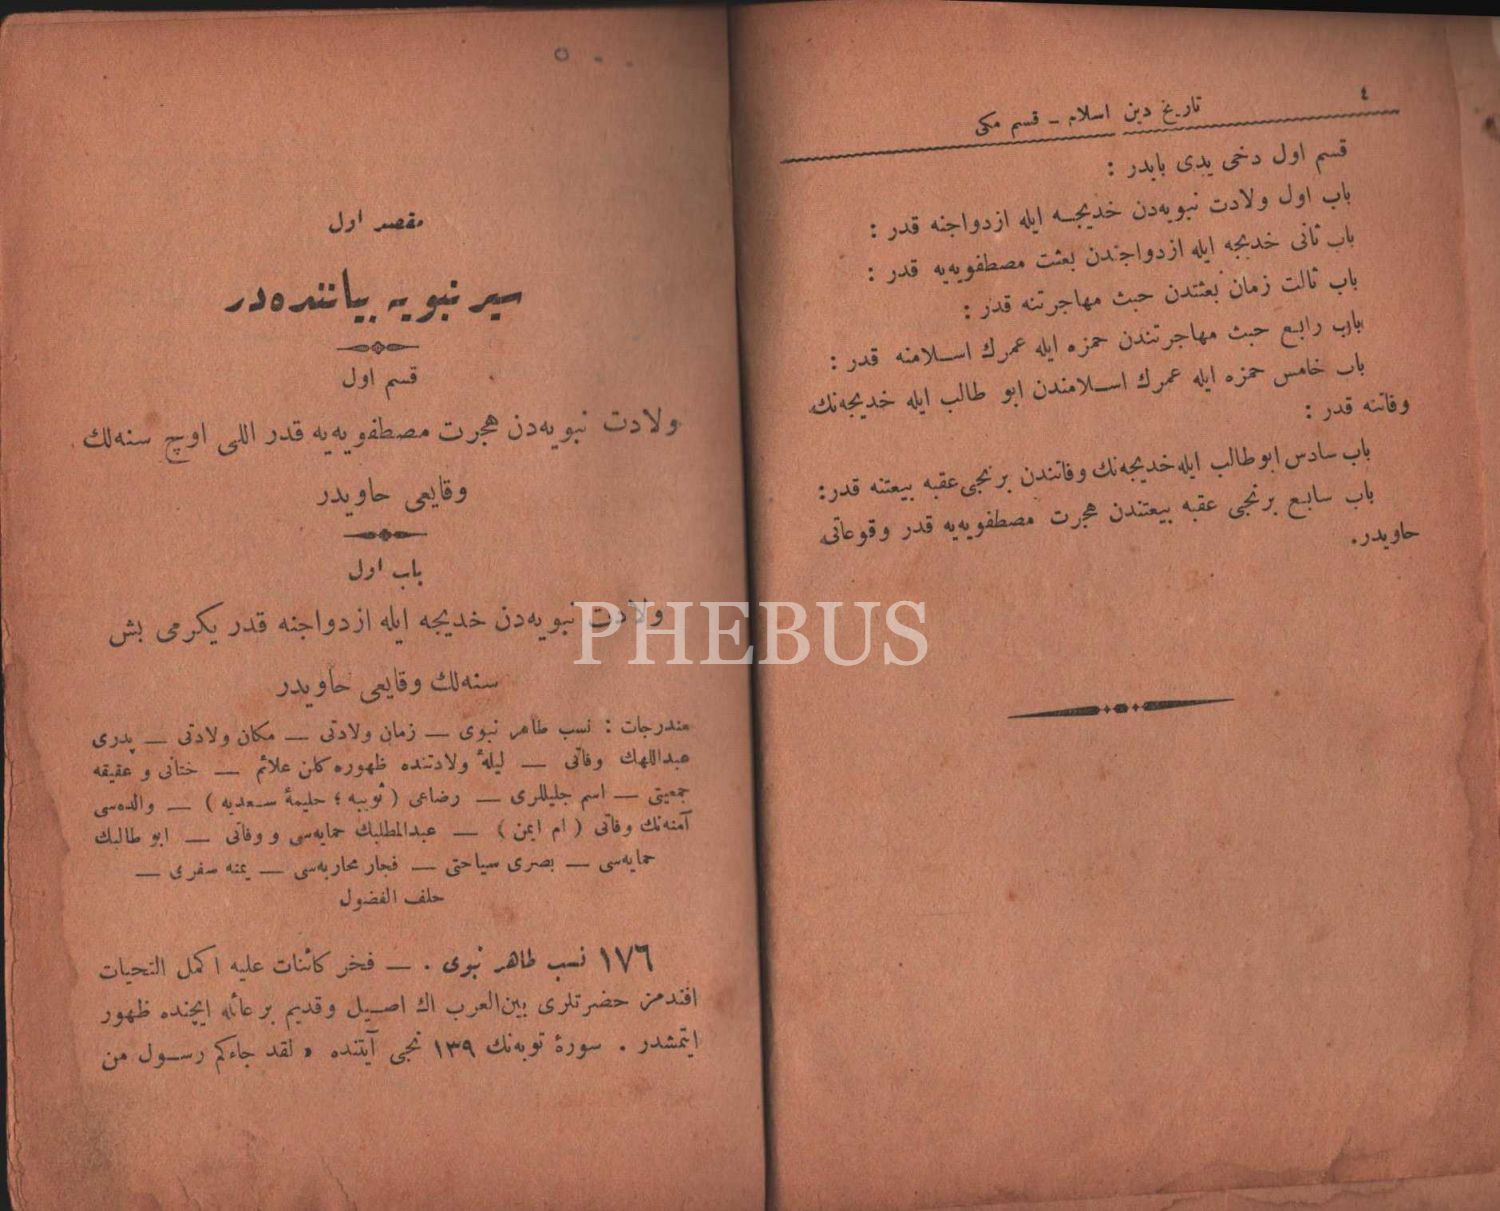 ٤
تاريخ دين اسلام – قسم مكى
قسم اول دخى يدى بابدر :
باب اول ولادت نبويه‌دن خديجه ايله ازدواجنه قدر :
باب ثانى خديجه ايله ازدواجندن بعثت مصطفويه‌يه قدر :
باب ثالت زمان بعثتدن حبث مهاجرتنه قدر :
باب رابع حبث مهاجرتندن حمزه ايله عمرك اسلامنه قدر :
باب خامس حمزه ايله عمرك اسلامندن ابو طالب ايله خديجه‌نك
وفاتنه قدر :
باب سادس ابو طالب ايله خديجه‌نك وفاتندن برنجى عقبه بيعتنه قدر :
باب سابع برنجى عقبه بيعتندن هجرت مصطفويه‌يه قدر وقوعاتى
حاويدر.
مقصد اول
سير نبويه بياننده‌در
قسم اول
ولادت نبويه‌دن هجرت مصطفويه‌يه قدر اللى اوچ سنه‌لك
وقايعى حاويدر
باب اول
ولادت نبويه‌دن خديجه ايله ازدواجنه قدر يكرمى بش
سنه‌لك وقايعى حاويدر
مندرجات : نسب طاهر نبوى — زمان ولادتى — مكان ولادتى — پدرى
عبداللهك وفاتى — ليلۀ ولادتنده ظهوره كلن علائم — ختانى و عقيقه
جمعيتى — اسم جليللرى — رضاعى ( ثويبه ؛ حليمۀ سعديه ) — والده‌سى
آمنه‌نك وفاتى ( ام ايمن ) — عبدالمطلبك حمايه‌سى و وفاتى — ابو طالبك
حمايه‌سى — بصرى سياحتى — فجار محاربه‌سى — يمنه سفرى —
حلف الفضول
١٧٦ نسب طاهر نبوى . — فخر كائنات عليه اكمل التحيات
افندمز حضرتلرى بين‌العرب اك اصيل وقديم بر عائله ايچنده ظهور
ايتمشدر . سورۀ توبه‌نك ١٣٩ نجى آيتنده « لقد جاءكم رسول من
PHEBUS